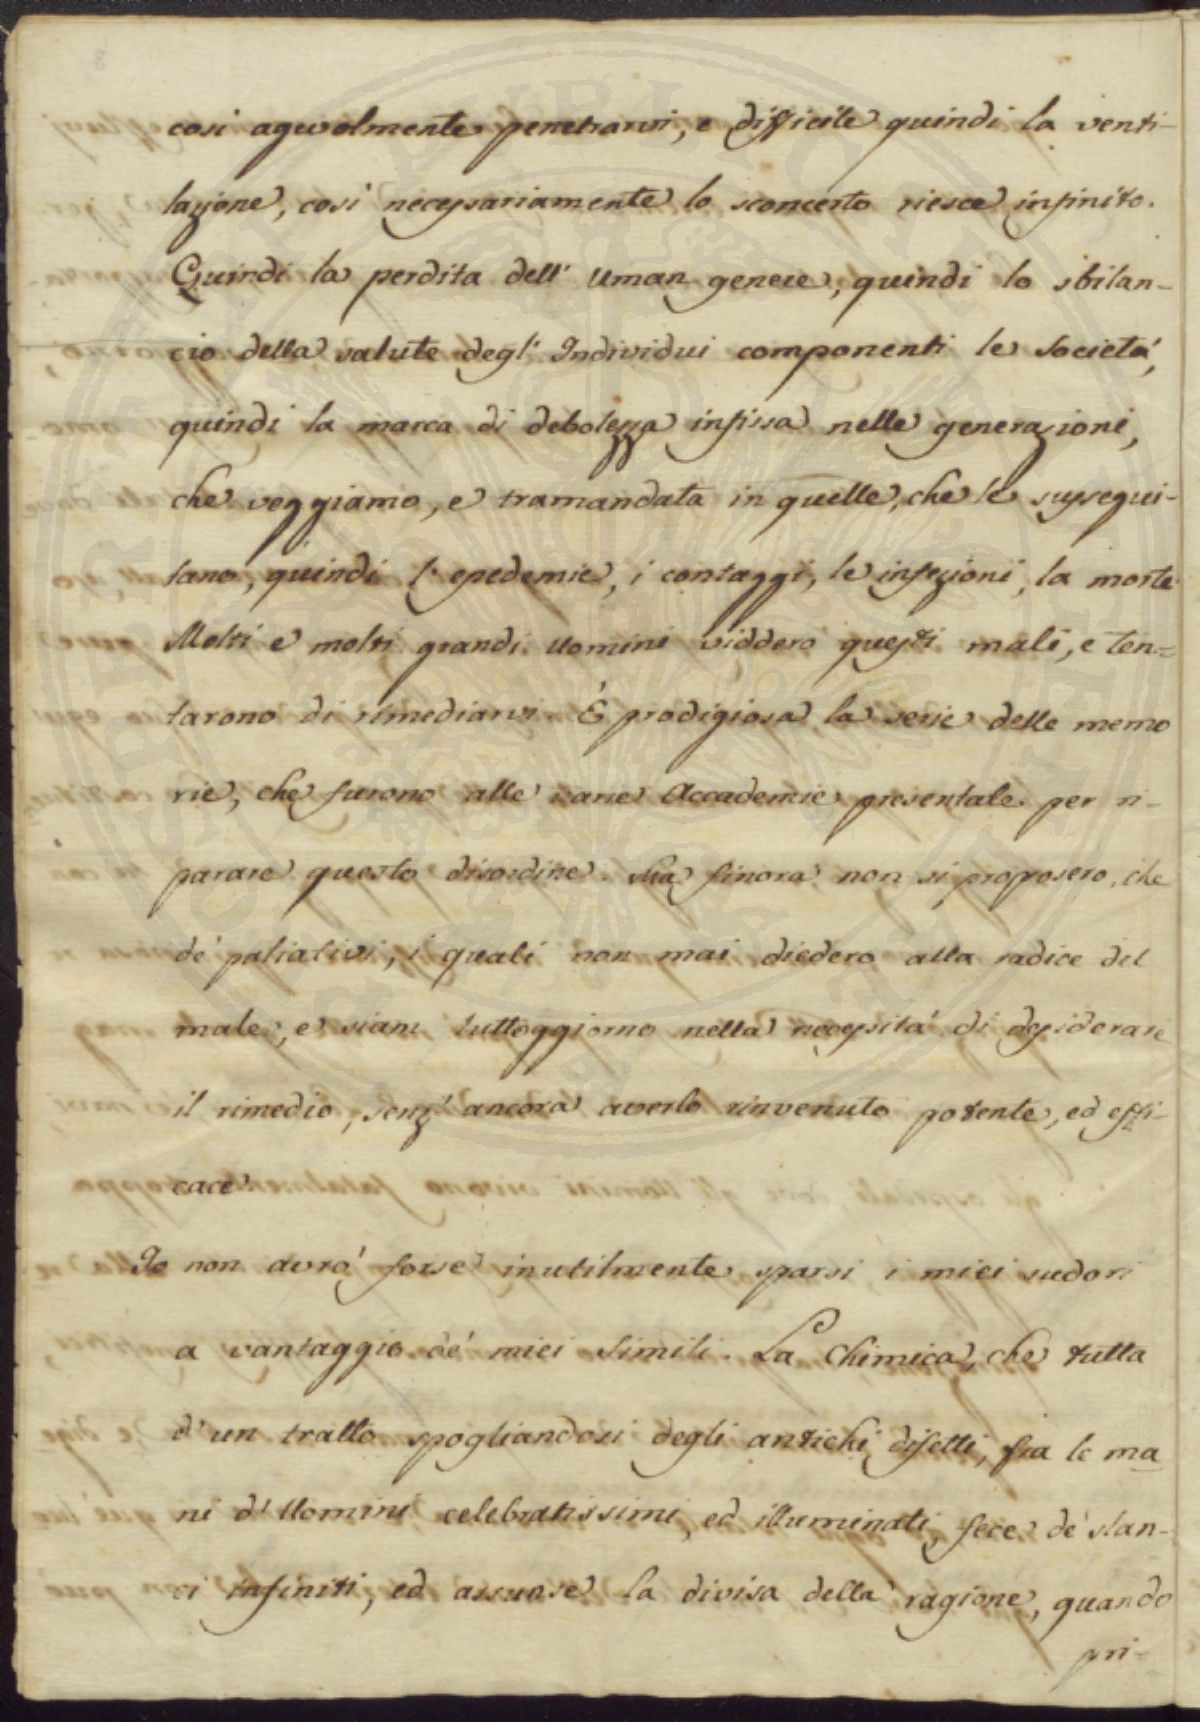 così agevolmente penetrarvi, e difficile quindi la venti-
lazione, così necessariamente lo sconcerto riesce infinito.
Quindi la perdita dell' Uman genere, quindi lo sbilan-
cio della salute degl' Individui componenti le Societa',
quindi la marca di debolezza infissa nelle generazioni,
che veggiamo, e tramandata in quelle, che le sussegui-
tano, quindi l' epedemie, i contaggi, le infezioni, la morte
Molti e molti grandi Uomini viddero questi mali, e ten=
tarono di rimediarvi. È prodigiosa la serie delle memo
rie, che furono alle varie Accademie presentate per ri-
parare questo disordine. Ma finora non si proposero, che
de' paliativi, i quali non mai diedero alla radice del
male, e siam tuttoggiorno nella necessita' di desiderare
il rimedio, senz' ancora averlo rinvenuto potente, ed effi-
cace.
Io non avro' forse inutilmente sparsi i miei sudori
a vantaggio de' miei Simili. La Chimica, che tutta
d' un tratto spogliandosi degli antichi difetti, fra le ma
ni d' Uomini celebratissimi, ed illuminati, fece de' slan-
ci infiniti, ed assunse la divisa della ragione, quando
pri-